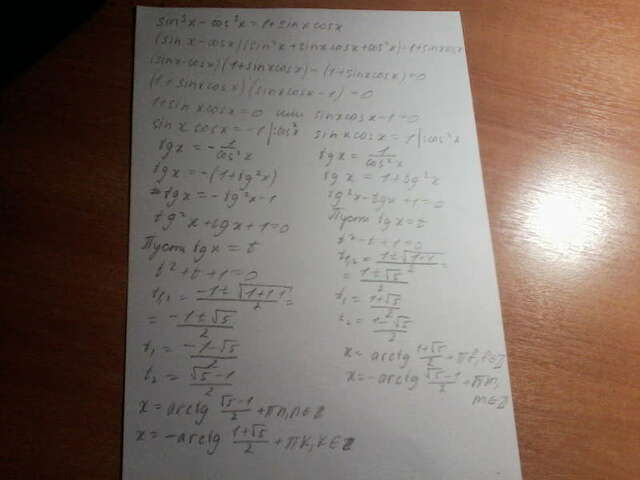 sin³x - cos³x = 1 + sin x cos x
(sin x - cos x)(sin²x + sin x cos x + cos²x) - 1 + sin x cos x
(sin x - cos x)(1 + sin x cos x) - (1 + sin x cos x) = 0
(1 + sin x cos x)(sin x cos x - 1) = 0
1 + sin x cos x = 0 или sin x cos x - 1 = 0
sin x cos x = -1 | : cos²x
tg x = - 1/cos²x
tg x = -(1 + tg²x)
tg x = -tg²x - 1
tg²x + tg x + 1 = 0
Пусть tg x = t
t² + t + 1 = 0
t₁,₂ = (-1 ± √(1+1·1))/2 =
= (-1 ± √5)/2
t₁ = (-1 - √5)/2
t₂ = (√5 - 1)/2
x = arctg (√5 - 1)/2 + πn, n ∈ Z
x = -arctg (1 + √5)/2 + πk, k ∈ Z
sin x cos x = 1 | : cos²x
tg x = 1/cos²x
tg x = 1 + tg²x
tg²x - tg x + 1 = 0
Пусть tg x = t
t² - t + 1 = 0
t₁,₂ = (1 ± √(1-1))/2 =
= (1 ± √5)/2
t₁ = (1 + √5)/2
t₂ = (1 - √5)/2
x = arctg (1 + √5)/2 + πℓ, ℓ ∈ Z
x = -arctg (√5 - 1)/2 + πm,
m ∈ Z